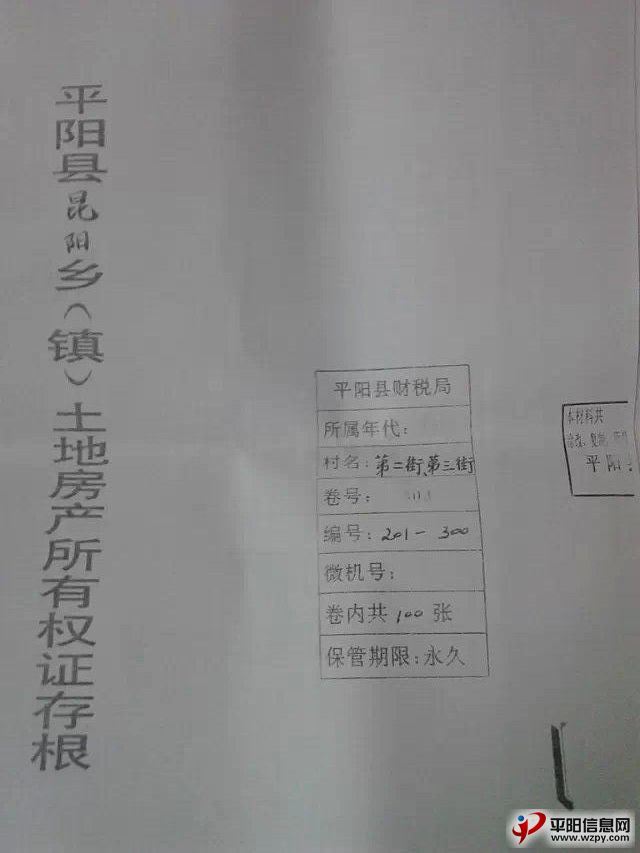 平阳县昆阳乡（镇）土地房产所有权证存根
平阳县财税局
所属年代:
村名: 第二街、第三街
卷号:
编号: 201-300
微机号:
卷内共100张
保管期限: 永久
本材料共
平阳
平阳信息网
www.wzpy.com